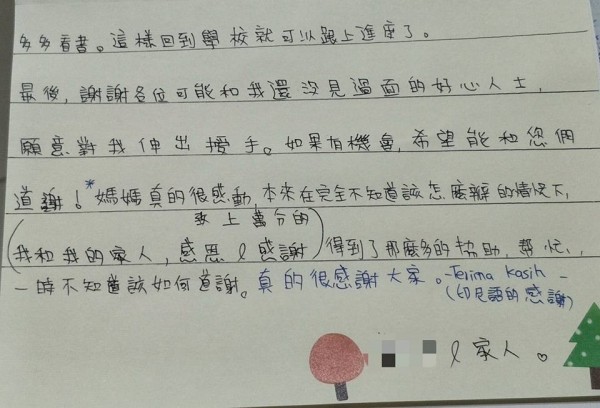 多多看書。這樣回到學校就可以跟上進度了。
最後，謝謝各位可能和我還沒見過面的好心人士，
願意對我伸出援手。如果有機會，希望能和您們
道謝！*媽媽真的很感動，本來在完全不知道該怎麼辦的情況下，
致上萬分的
(我和我的家人，感恩&感謝)得到了那麼多的協助，幫忙，
一時不知道該如何道謝。真的很感謝大家。-Terima Kasih-
(印尼語的感謝)
&家人。